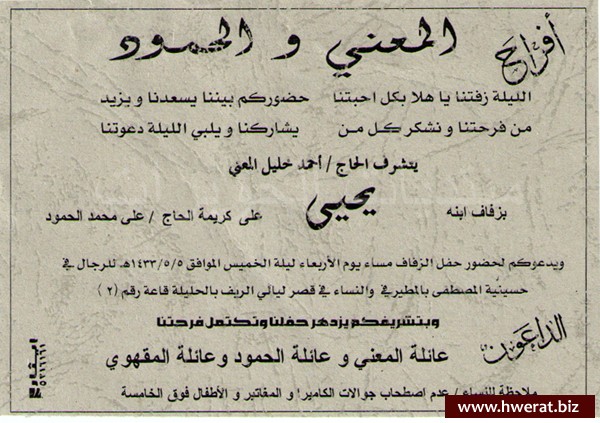 أفراح
المعني و الحمود
الليلة زفتنا يا هلا بكل احبتنا حضوركم بيننا يسعدنا و يزيد
من فرحتنا و نشكر كل من يشاركنا و يلبي الليلة دعوتنا
يتشرف الحاج / أحمد خليل المعني
بزفاف ابنه يحيى على كريمة الحاج / على محمد الحمود
ويدعوكم لحضور حفل الزفاف مساء يوم الأربعاء ليلة الخميس الموافق ١٤٣٣/٥/٥هـ للرجال في
حسينية المصطفى بالمطيرفي والنساء في قصر ليالي الريف بالحليلة قاعة رقم (٢)
وبتشريفكم يزدهر حفلنا وتكتمل فرحتنا
الداعون
عائلة المعني و عائلة الحمود وعائلة المقهوي
ملاحظة للنساء / عدم اصطحاب جوالات الكاميرا و المغاتير و الأطفال فوق الخامسة
www.hwerat.biz